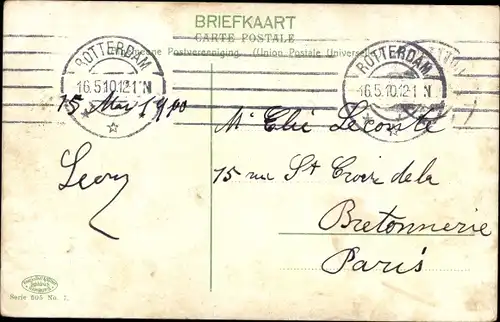 BRIEFKAART
CARTE POSTALE
Algemeene Postvereeniging. (Union Postale Universelle)
ROTTERDAM
16.5.10.12-1 N
ROTTERDAM
16.5.10.12-1 N
15 Mai 1910
Mr Elie Lecomte
Leon
15 rue St Croix de la
Bretonnerie
Paris
Serie 505 No. 1.